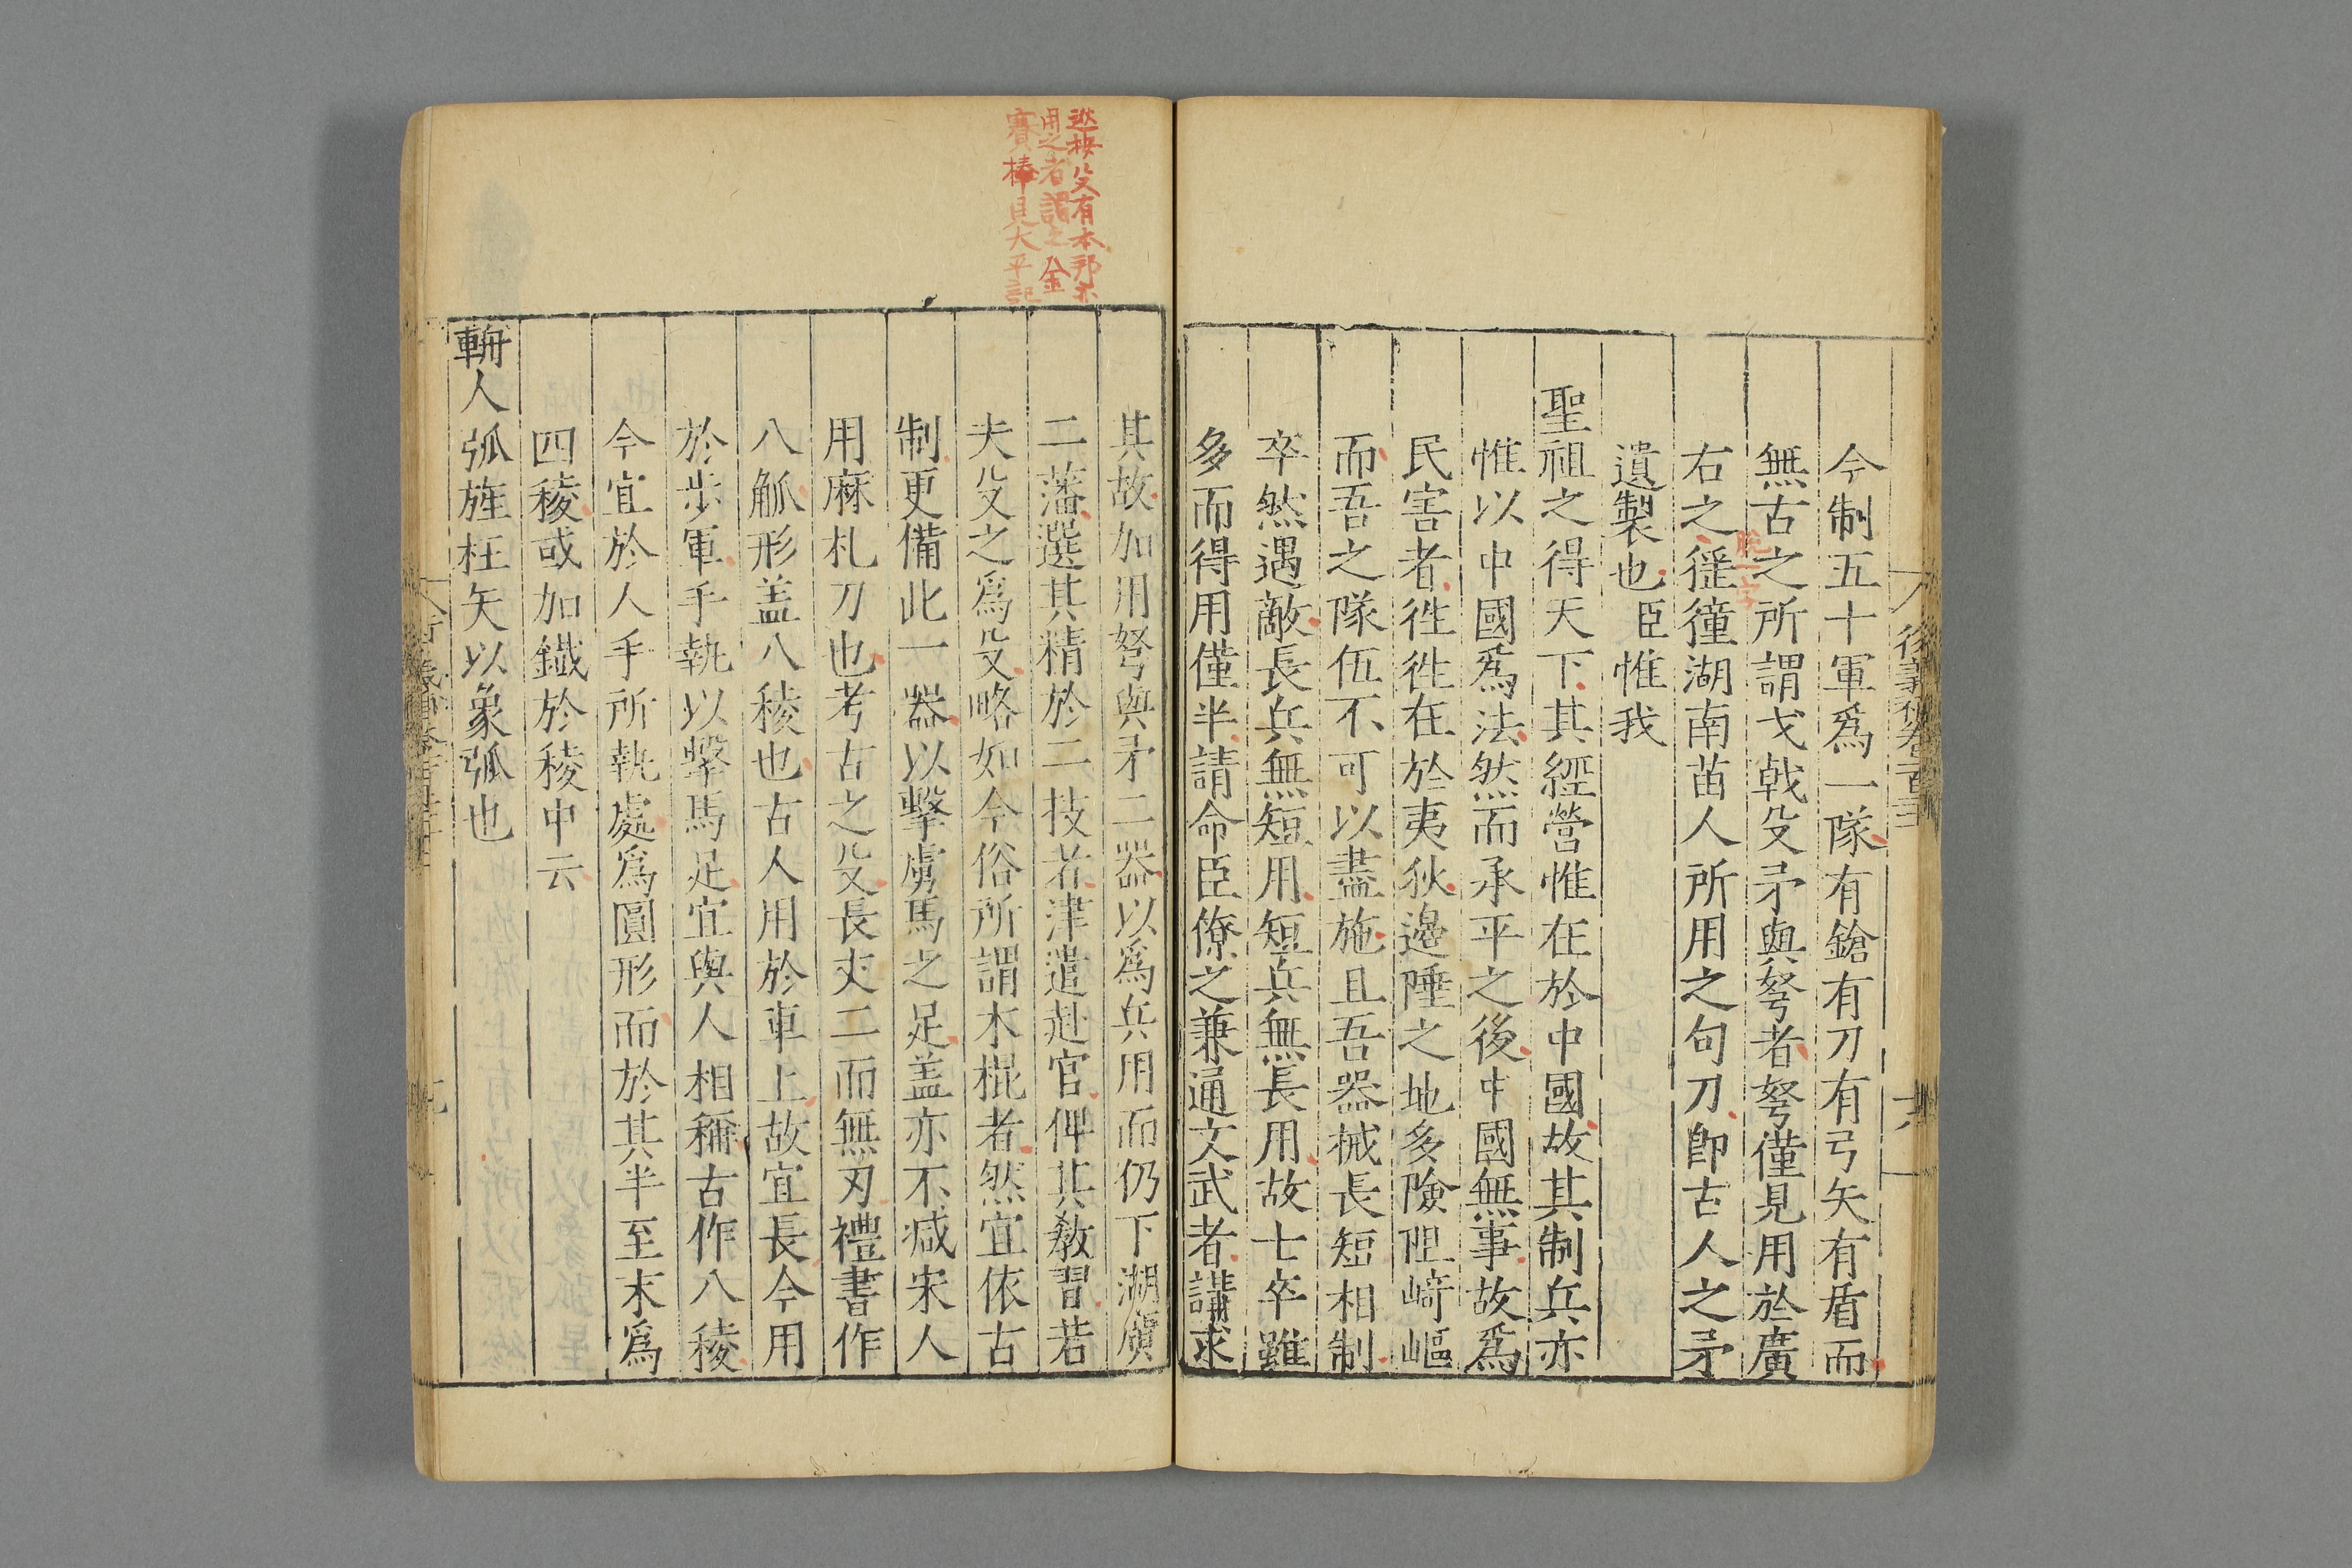 今制五十軍爲一隊有鎗有刀有弓矢有盾而
無古之所謂戈戟殳矛與弩者弩僅見用於廣
脫一字
右之徭獞湖南苗人所用之句刀卽古人之矛
遺製也臣惟我
聖祖之得天下其經營惟在於中國故其制兵亦
惟以中國爲法然而承平之後中國無事故爲
民害者徃徃在於夷狄邊陲之地多險阻崎嶇
而吾之隊伍不可以盡施且吾器械長短相制
卒然遇敵長兵無短用短兵無長用故士卒雖
多而得用僅半請命臣僚之兼通文武者講求
迯按殳有本邦不
用之者謂之金
賽棒見大平記
其故加用弩與矛二器以爲兵用而仍下湖廣
二藩選其精於二技者津遣赴官俾其敎習若
夫殳之爲殳略如今俗所謂木棍者然宜依古
制更備此一器以擊虜馬之足盖亦不减宋人
用麻札刀也考古之殳長丈二而無刃禮書作
八觚形盖八稜也古人用於車上故宜長今用
於步軍手執以擊馬足宜與人相稱古作八稜
今宜於人手所執處爲圓形而於其半至末爲
四稜或加鐵於稜中云
輈人弧旌枉矢以象弧也